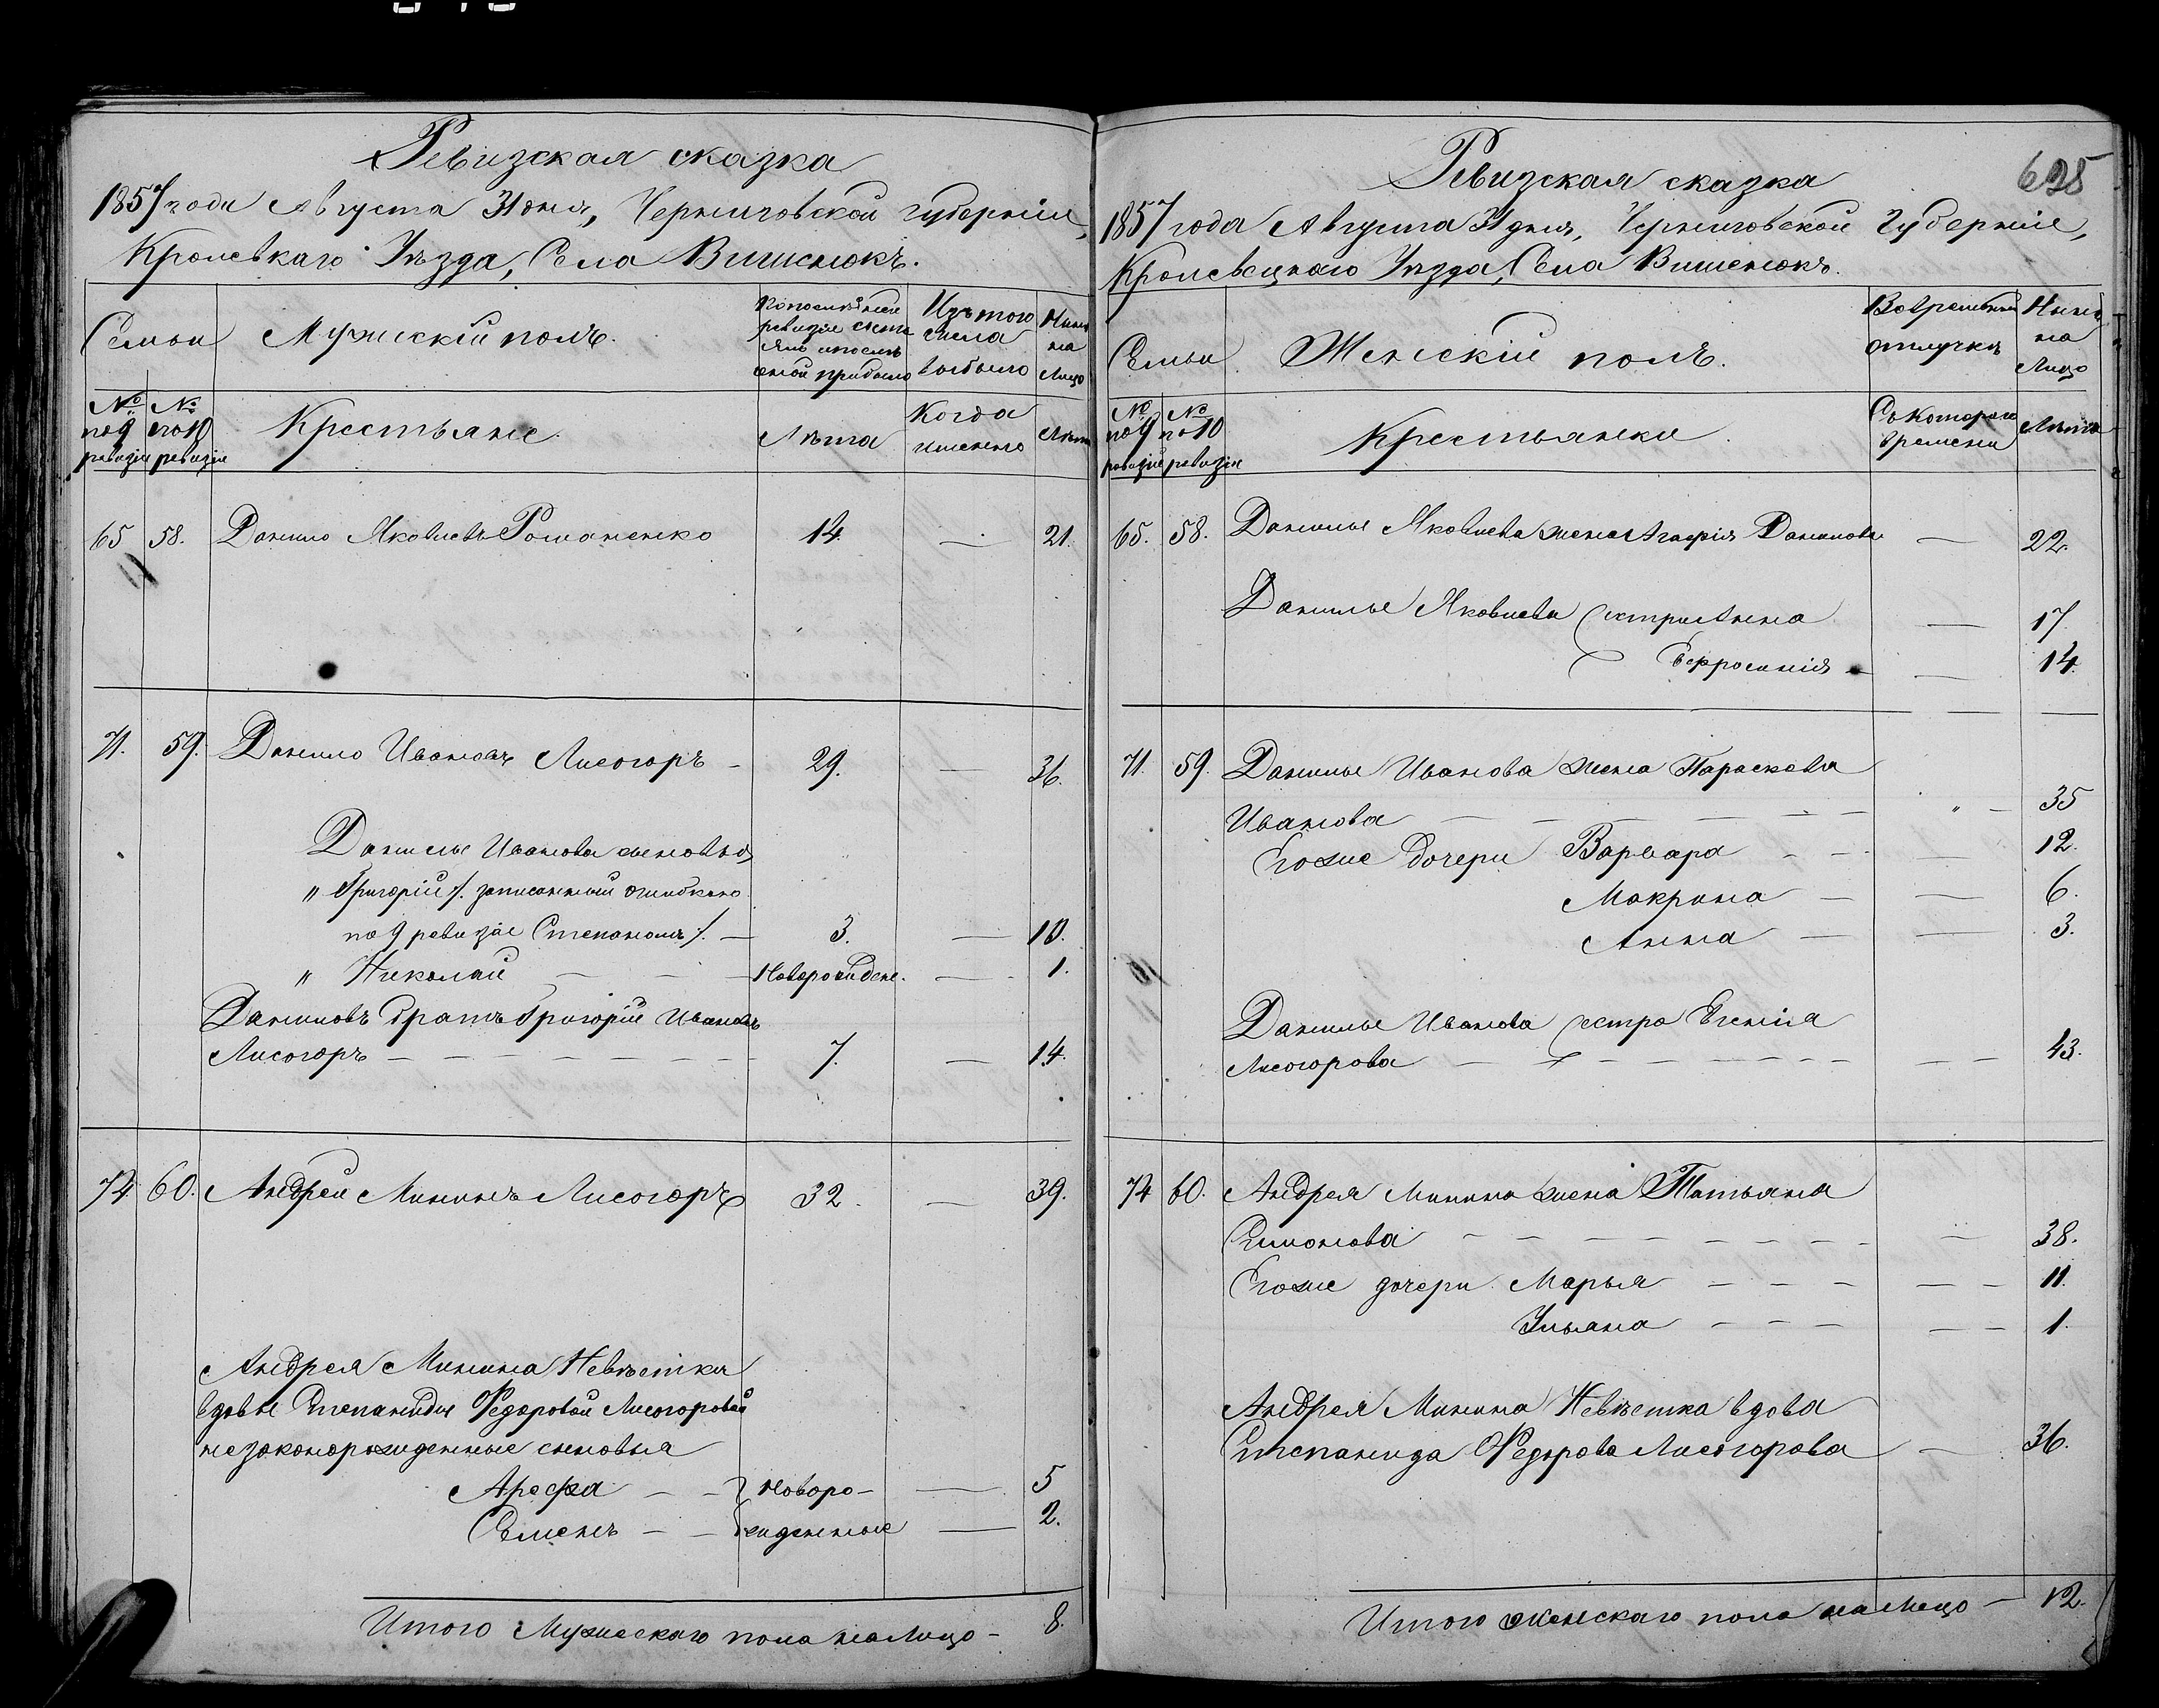 Ревизская сказка
1857 года Августа 31 дня, Черниговской губернии,
Кролевкаго Уезда, Села Вишенокъ.
Семьи
Мужескій полъ.
По последней
ревизіи состо
яло и после
оной прибыло
Изъ того
числа
выбыло
Ныне
на
Лицо
№ по 9 ревизіи
№ по 10 ревизіи
Крестьяне.
Лѣта
Когда
именно
Лѣта
65 58. Данило Яковлевъ Романенко 14. — 21.
71. 59. Данило Ивановъ Лисогоръ — 29. — 36.
Данилы Иванова сыновья
" Григорій /. записанный ошибкою
по 9 ревизіи Степаномъ /. — 3. — 10.
" Николай — — — Новорожден. — 1.
Даниловъ братъ Григорій Ивановъ
Лисогоръ — — — — — — — 7. — 14.
74 60. Андрей Мининъ Лисогоръ 32. — 39.
Андрея Минина Невѣстки
вдовы Степаниды Федоровой Лисогоровой
незаконорожденные сыновья
Арефа — — Новоро- — 5
Семенъ — — жденные — 2.
Итого Мужескаго пола на Лицо — 8.
625
Ревизская сказка
1857 года Августа 31 дня, Черниговской Губерніи,
Кролевецкаго Уѣзда, Села Вишенокъ.
Семьи
Женскій полъ.
Во временной
отлучкѣ
Нынѣ
на
Лицо
№ по 9 ревизіи
№ по 10 ревизіи
Крестьянки.
Съ котораго
времени
Лѣта
65. 58. Данилы Яковлева жена Агафія Данилова — 22.
Данилы Яковлева Сестры Анна — 17
Евфросинія — — 14.
71. 59. Данилы Иванова жена Параскева
Иванова — — — — — — " — 35
Его же дочери Варвара — — — 12.
Макрина — — 6.
Анна — — 3.
Данилы Иванова сестра Евгенія
Лисогорова — — — — — — — — — 43.
74 60. Андрея Минина жена Татьяна
Симонова — — — — — — — — — 38.
Его же дочери Марья — — — — — 11.
Ульяна — — — — — 1.
Андрея Минина Невѣстка вдова
Степанида Федорова Лисогорова — 36.
Итого женскаго пола на Лицо — 12.